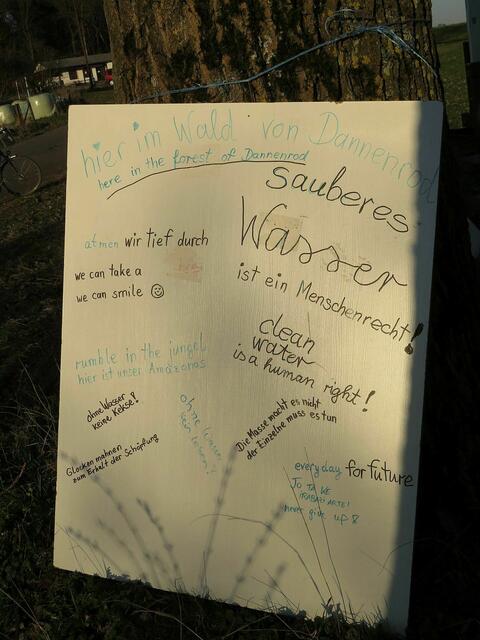 hier im Wald von Dannenrod
here in the forest of Dannenrod
sauberes
Wasser
ist ein Menschenrecht!
atmen wir tief durch
we can take a
we can smile ☺
clean
water
is a human right!
rumble in the jungel
hier ist unser Amazonas
ohne Wasser
keine Kekse!
ohne Wasser
kein Leben!
Die Masse macht es nicht
der Einzelne muss es tun
Glocken mahnen
zum Erhalt der Schöpfung
everyday for future
never give up